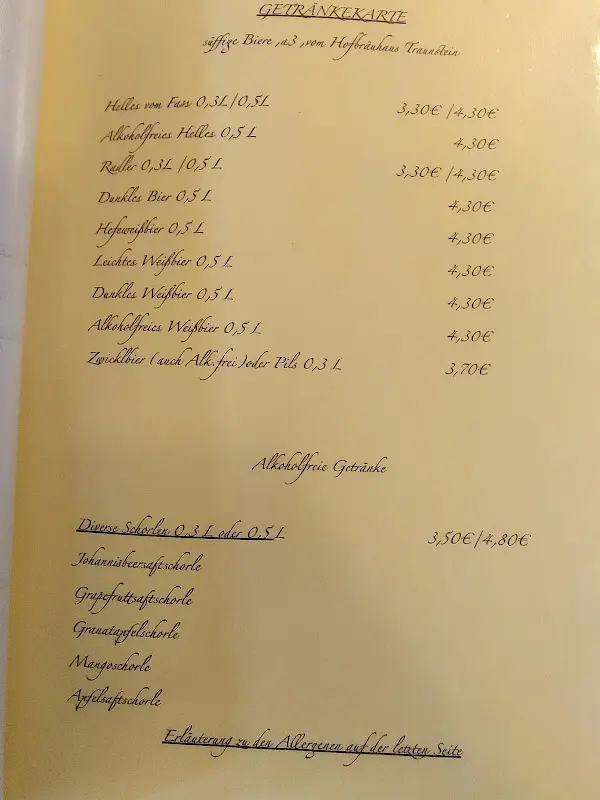 GETRÄNKEKARTE
süffige Biere ,a3 ,vom Hofbräuhaus Traunstein
Helles vom Fass 0,3L/0,5L 3,30€ /4,30€
Alkoholfreies Helles 0,5 L 4,30€
Radler 0,3L /0,5 L 3,30€ /4,30€
Dunkles Bier 0,5 L 4,30€
Hefeweißbier 0,5 L 4,30€
Leichtes Weißbier 0,5 L 4,30€
Dunkles Weißbier 0,5 L 4,30€
Alkoholfreies Weißbier 0,5 L 4,30€
Zwicklbier (auch Alk.frei)oder Pils 0,3 L 3,70€
Alkoholfreie Getränke
Diverse Schorlen 0,3 L oder 0,5 L 3,50€/4,80€
Johannisbeersaftschorle
Grapefruttsaftschorle
Granatapfelschorle
Mangoschorle
Apfelsaftschorle
Erläuterung zu den Allergenen auf der letzten Seite